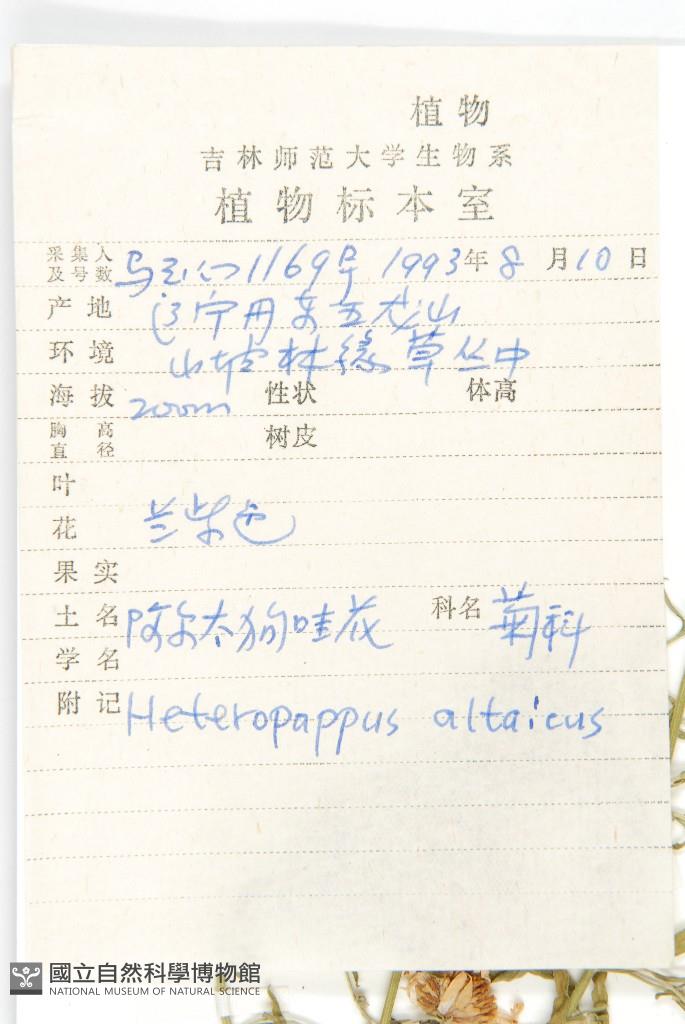 植物
吉林师范大学生物系
植物标本室
采集人及号数 马玉心 1169号 1993年8月10日
产地 辽宁丹东五龙山
环境 山坡林缘草丛中
海拔 200m 性状 体高
胸高直径 树皮
叶
花 兰紫色
果实
土名 阿尔太狗哇花 科名 菊科
学名
附记 Heteropappus altaicus
國立自然科學博物館
NATIONAL MUSEUM OF NATURAL SCIENCE